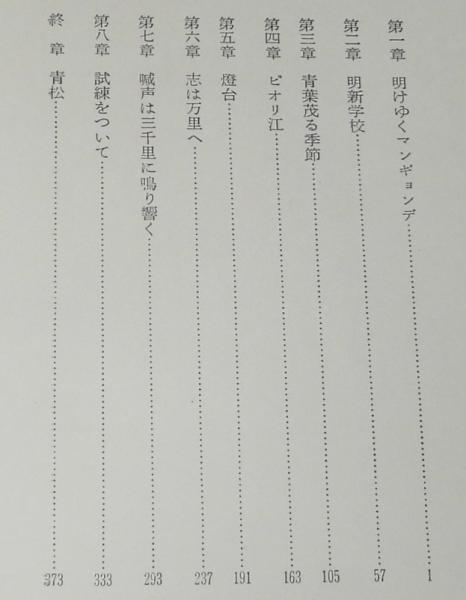 第一章　明けゆくマンギョンデ……1
第二章　明新学校……57
第三章　青葉茂る季節……105
第四章　ピオリ江……163
第五章　燈台……191
第六章　志は万里へ……237
第七章　喊声は三千里に鳴り響く……293
第八章　試練をついて……333
終　章　青松……373